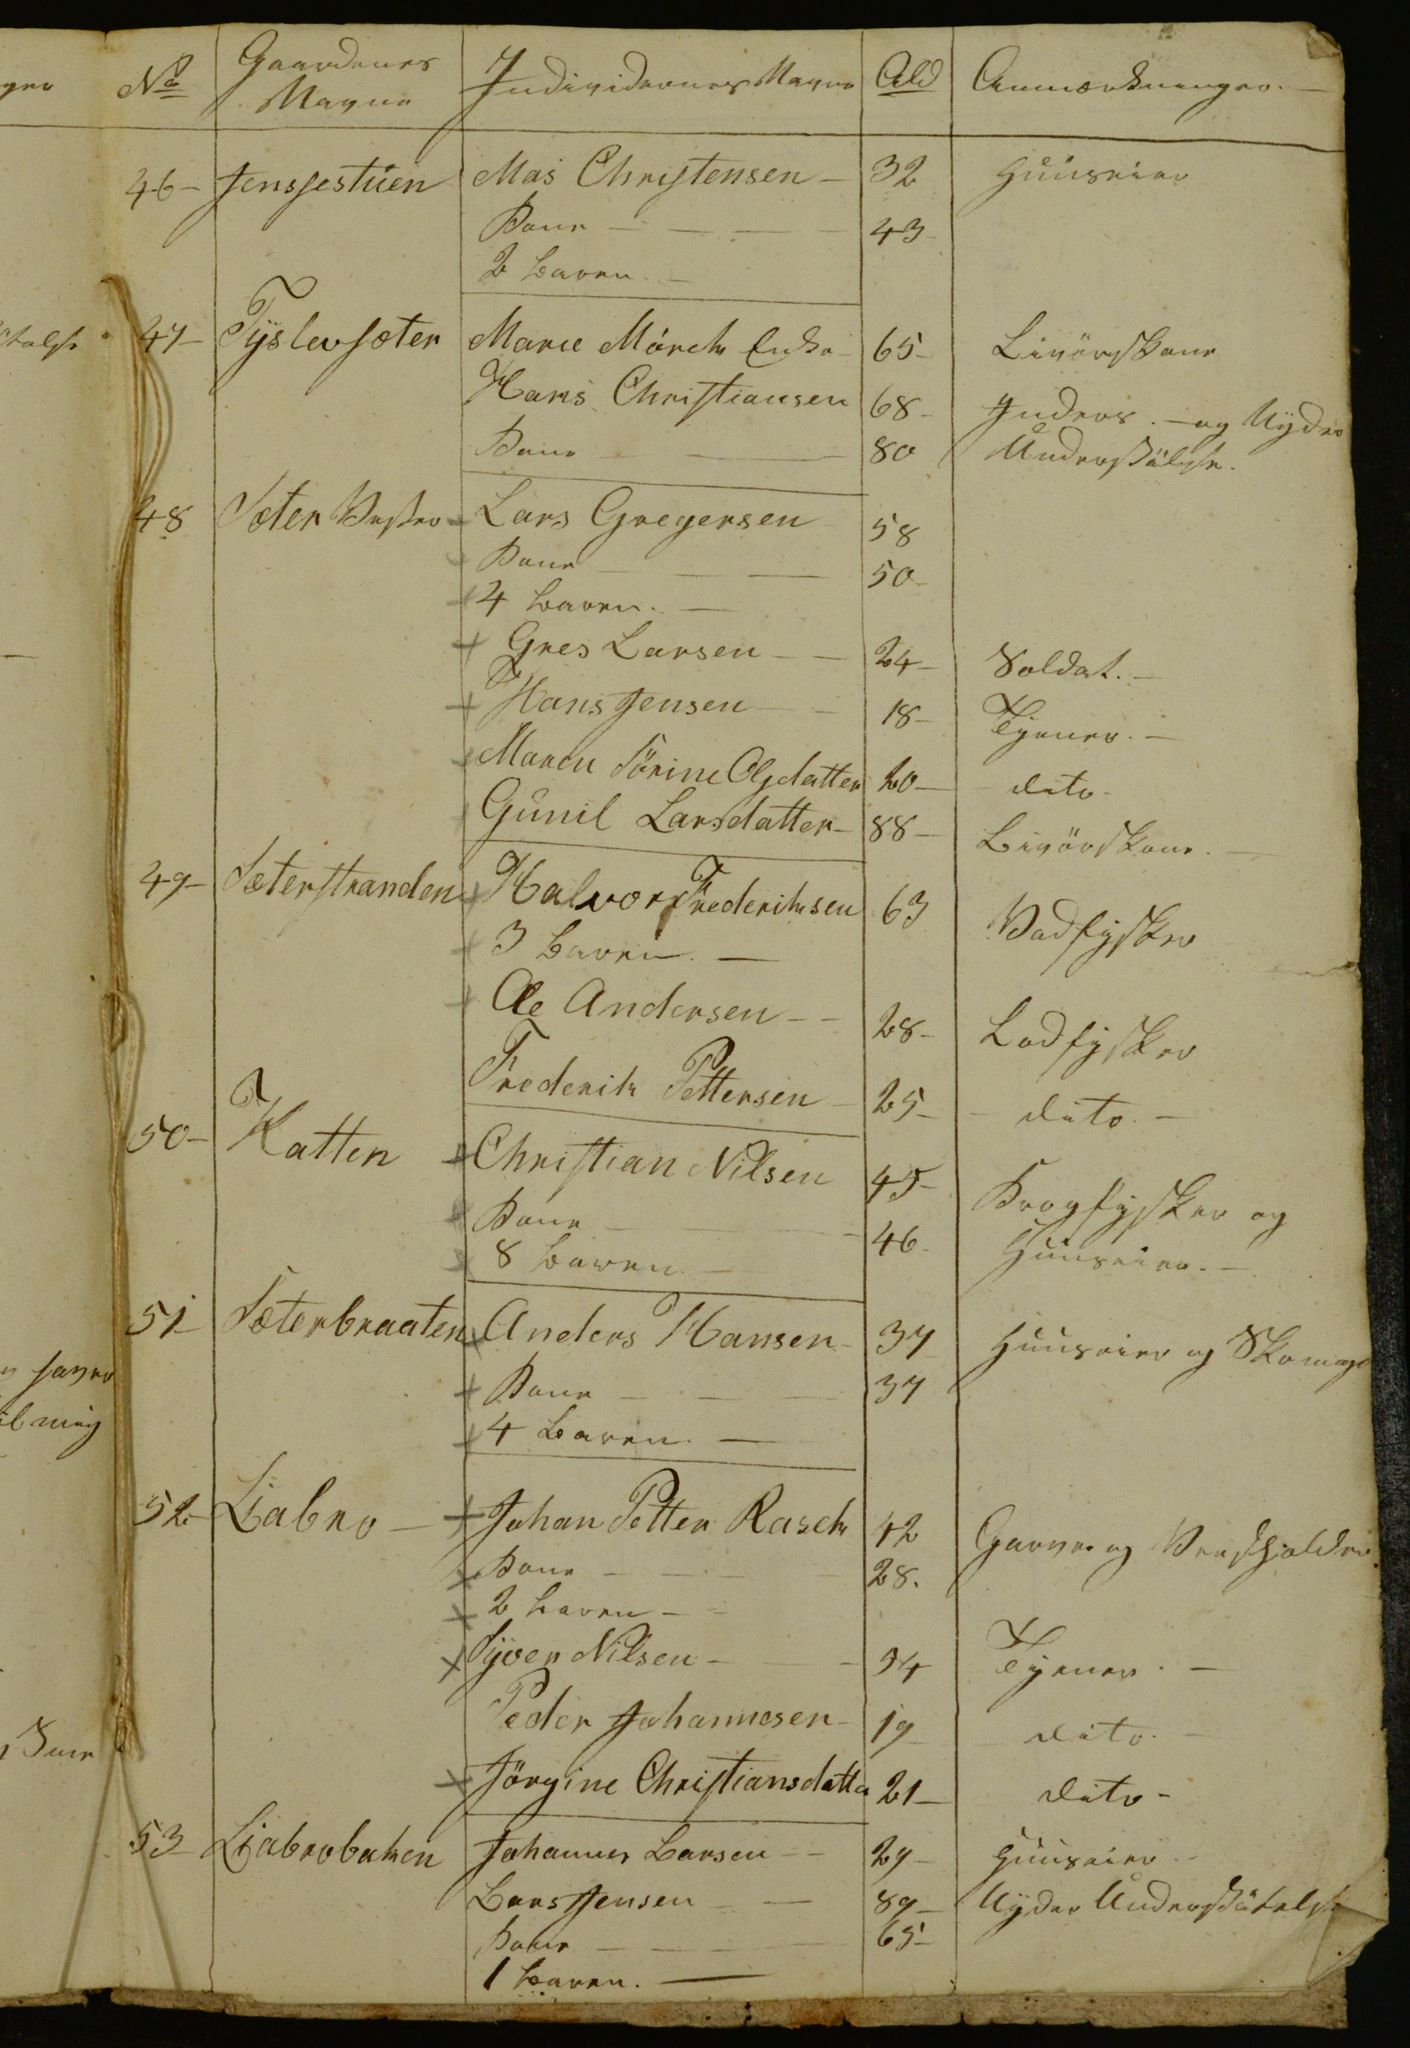 No Gaardenes Navne Individernes Navne Ald Anmærkninger.
46 Jensjestuen Mas Christensen 32 Huuseier
Kone 43
2 Børn
47 Tyslevsæter Marie Mörch Enke 65 Livörskone
Hans Christiansen 68 Inders. og Nyder
Kone 80 Understötelse.
48 Sæter Vestre Lars Gregersen 58
Kone 50
4 Børn.
Gres Larsen 24 Soldat.
Hans Jensen 18 Tjener.
Maren Sörine Olsdatter 20 dito
Gunil Larsdatter 88 Livörskone.
49 Sæterstranden Halvor Frederiksen 63 Vadfysker
3 Børn.
Ole Andersen 28 Lodfysker
Frederik Pettersen 25 dito.
50 Katten Christian Nilsen 45 Krogfysker og
Kone 46 Huuseier.
8 Børn
51 Sæterbraaten Anders Hansen 37 Huuseier og Skomager
Kone 37
4 Børn.
52 Liabro Johan Petter Rasch 42 Garver og Vertsholder
Kone 28.
2 Børn
Syver Nilsen 54 Tjener.
Peder Johannesen 19 dito.
Jörgine Christiansdatter 21 dito
53 Liabrobaken Johannes Larsen 29 Huuseier
Lars Jensen 89 Nyder Understötelse
Kone 65
1 Børn.